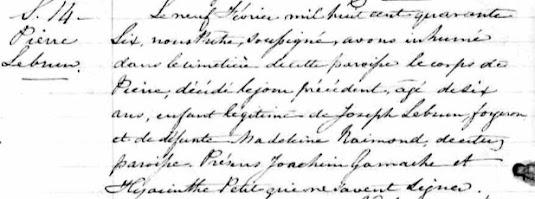 S. 14.
Pierre
Lebrun.
Le neuf Février mil huit cent quarante
six, nous Ptre, soussigné, avons inhumé
dans le cimetière de cette paroisse le corps de
Pierre, décédé le jour précédent, agé de six
ans, enfant légitime de Joseph Lebrun, forgeron
et de défunte Madeleine Raimond, de cette
paroisse. Présens Joachim Gamache et
Hyacinthe Petit qui ne savent signer.